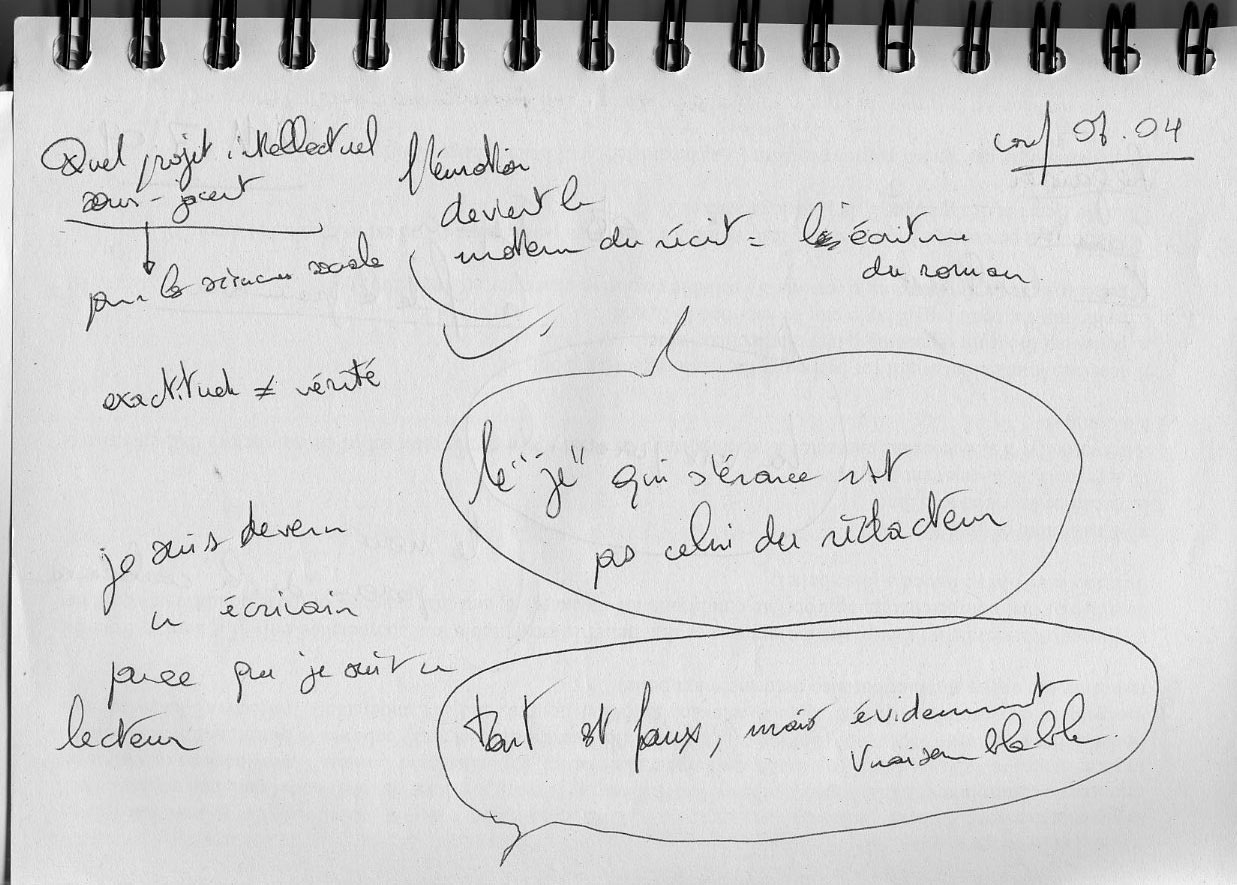 conf 08.04
Quel projet intellectuel
sous-jacent
pour les sciences sociales
exactitude ≠ vérité
je suis devenu
un écrivain
parce que je suit un
lecteur
l'émotion
devient le
moteur du récit = l'écriture
du roman
le "je" qui s'énonce est
pas celui du rédacteur
tout est faux, mais évidemment
vraisemblable.